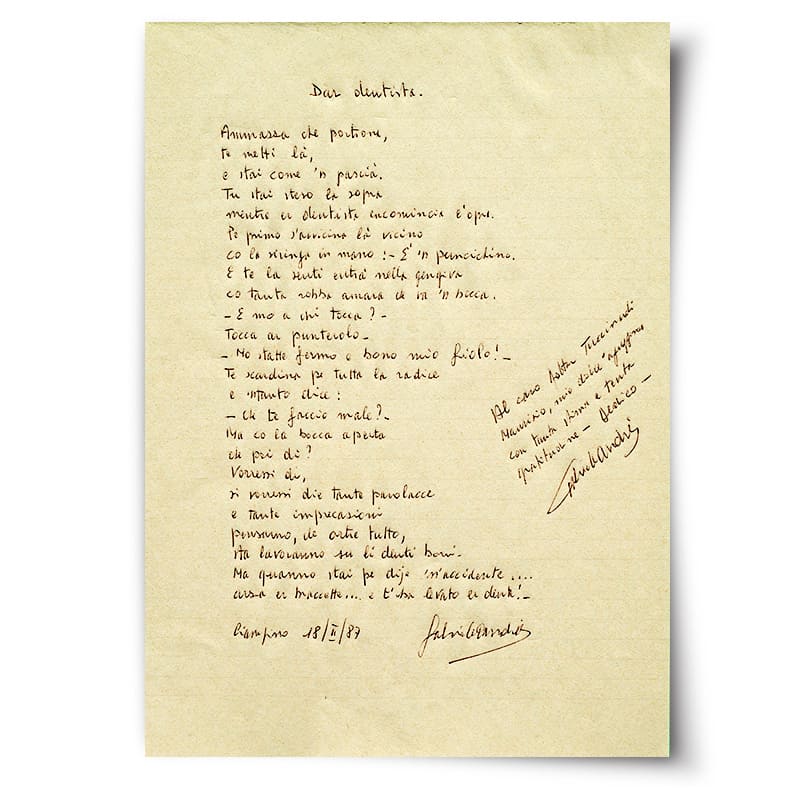 Dar dentista.
Ammazza che portrone,
te metti là,
e stai come 'n pascià.
Tu stai steso la sopra
mentre er dentista encomincia l'opra.
Pe primo s'avvicina là vicino
co la siringa in mano :- È 'n puncichino.
E te la senti entrà nella gengiva
co tanta robba amara che va 'n bocca.
- E mo a chi tocca? -
Tocca ar punterolo -
- Mo statte fermo e bono mio fiolo! -
Te scardina pe tutta la radice
e 'ntanto dice:
- Ch te faccio male? -
Ma co la bocca aperta
che poi di?
Vorressi di,
si voressi die tante parolacce
e tante imprecazioni
pensanno, de ortre tutto,
sta lavoranno su li denti boni.
Ma quanno stai pe dije 'n'accidente....
arza er braccetto... e t'ha levato er dente! -
Ciampino 18/II/87
Al caro
Maurizio, mio
con tanta stima e tanta
gratitudine - Dedico -